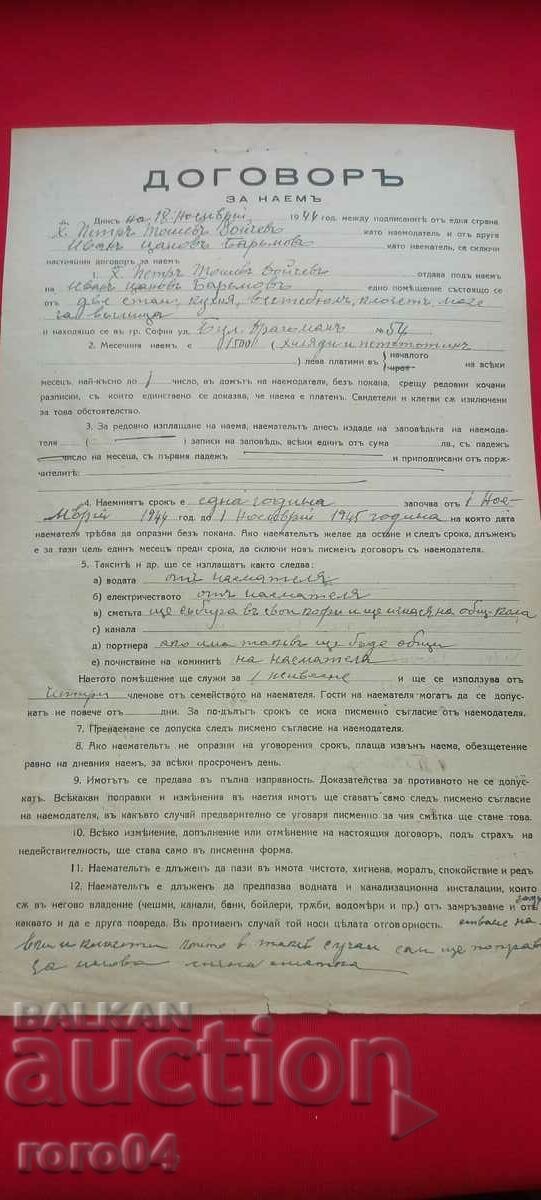 ДОГОВОРЪ
ЗА НАЕМЪ
Днисъ на 18 Ноемврий 1944 год. между подписанитѣ отъ една страна
Х. Петръ Тошевъ Бойчевъ като наемодатель и отъ друга
Иванъ Цановъ Баръмовъ като нвематель, са сключи
настоящия договоръ за наемъ
1. Х. Петръ Тошевъ Бойчевъ отдава подъ наемъ
на Иванъ Цановъ Баръмовъ едно помѣщение състоящо се
отъ две стаи, кухня, вестебюлъ, клозетъ, мазе
и находящо се въ гр. София ул. Бул. Драгоманъ № 54
2. Месечния наемъ е 1500 (хиляди и петстотинъ
) лева платими въ началото на всѣки
месецъ, най-късно до 1 число, въ домътъ на наемодателя, безъ покана, срещу редовни кочани
разписки, съ които единствено се доказва, че наема е платенъ. Свидетели и клетви сѫ изключени
за това обстоятелство.
3. За редовно изплащане на наема, наемательтъ днесъ издаде на заповѣдьта на наемода-
теля ( ) записи на заповѣдь, всѣки единъ отъ сума лв., съ падежъ
число на месеца, съ първия падежъ и приподписани отъ порѫ-
чителитѣ:
4. Наемниятъ срокъ е една година започва отъ 1 Ное-
мврий 1944 год. до 1 Ноемврий 1945 година на която дата
наемательтъ трѣбва да опразни безъ покана. Ако наемательтъ желае да остане и следъ срока, длъженъ
е за тази цель единъ месецъ преди срока, да сключи новъ писменъ договоръ съ наемодателя.
5. Такситѣ и др. ще се изплащатъ както следва:
а) водата отъ наемателя
б) електричеството отъ наемателя
в) сметьта ще събира въ свои кофи и ще изнася на общ. кола
с) канала
д) портиера ако има такъв ще бъде общи
е) почистване на коминитѣ на наемателя
Наетото помѣщение ще служи за живѣяне и ще се използува отъ
четири членове отъ семейството на наемателя. Гости на наемателя могатъ да се допус-
катъ не повече отъ дни. За по-дълъгъ срокъ се иска писмено съгласие отъ наемодателя.
7. Пренаемане се допуска следъ писмено съгласие на наемодателя.
8. Ако наемательтъ не опразни на уговорения срокъ, плаща извънъ наема, обезщетение
равно на дневния наемъ, за всѣки просроченъ день.
9. Имотътъ се предава въ пълна изправность. Доказателства за противното не се допус-
катъ. Всѣкакви поправки и измѣнения въ наетия имотъ ще ставатъ само следъ писмено съгласие
на наемодателя, въ какъвто случай предварително се уговаря писмено за чия смѣтка ще стане това.
10. Всѣко измѣнение, допълнение или отмѣнение на настоящия договоръ, подъ страхъ на
недействителность, ще става само въ писменна форма.
11. Наемательтъ е длъженъ да пази въ имота чистота, хигиена, моралъ, спокойствие и редъ
12. Наемательтъ е длъженъ да предпазва водната и канализационна инсталации, които
сѫ въ негово владение (чешми, канали, бани, бойлери, трѫби, водомѣри и пр.) отъ замръзване и отъ
каквато и да е друга повреда. Въ противенъ случай той носи цѣлата отговорность.
и клозети които в такъв случаи сам ще поправ
за негова сметка
BALKAN
auction
roro04